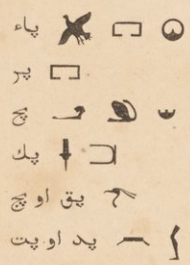 پاء
پر
پچ
پك
پق او پچ
پد او پت